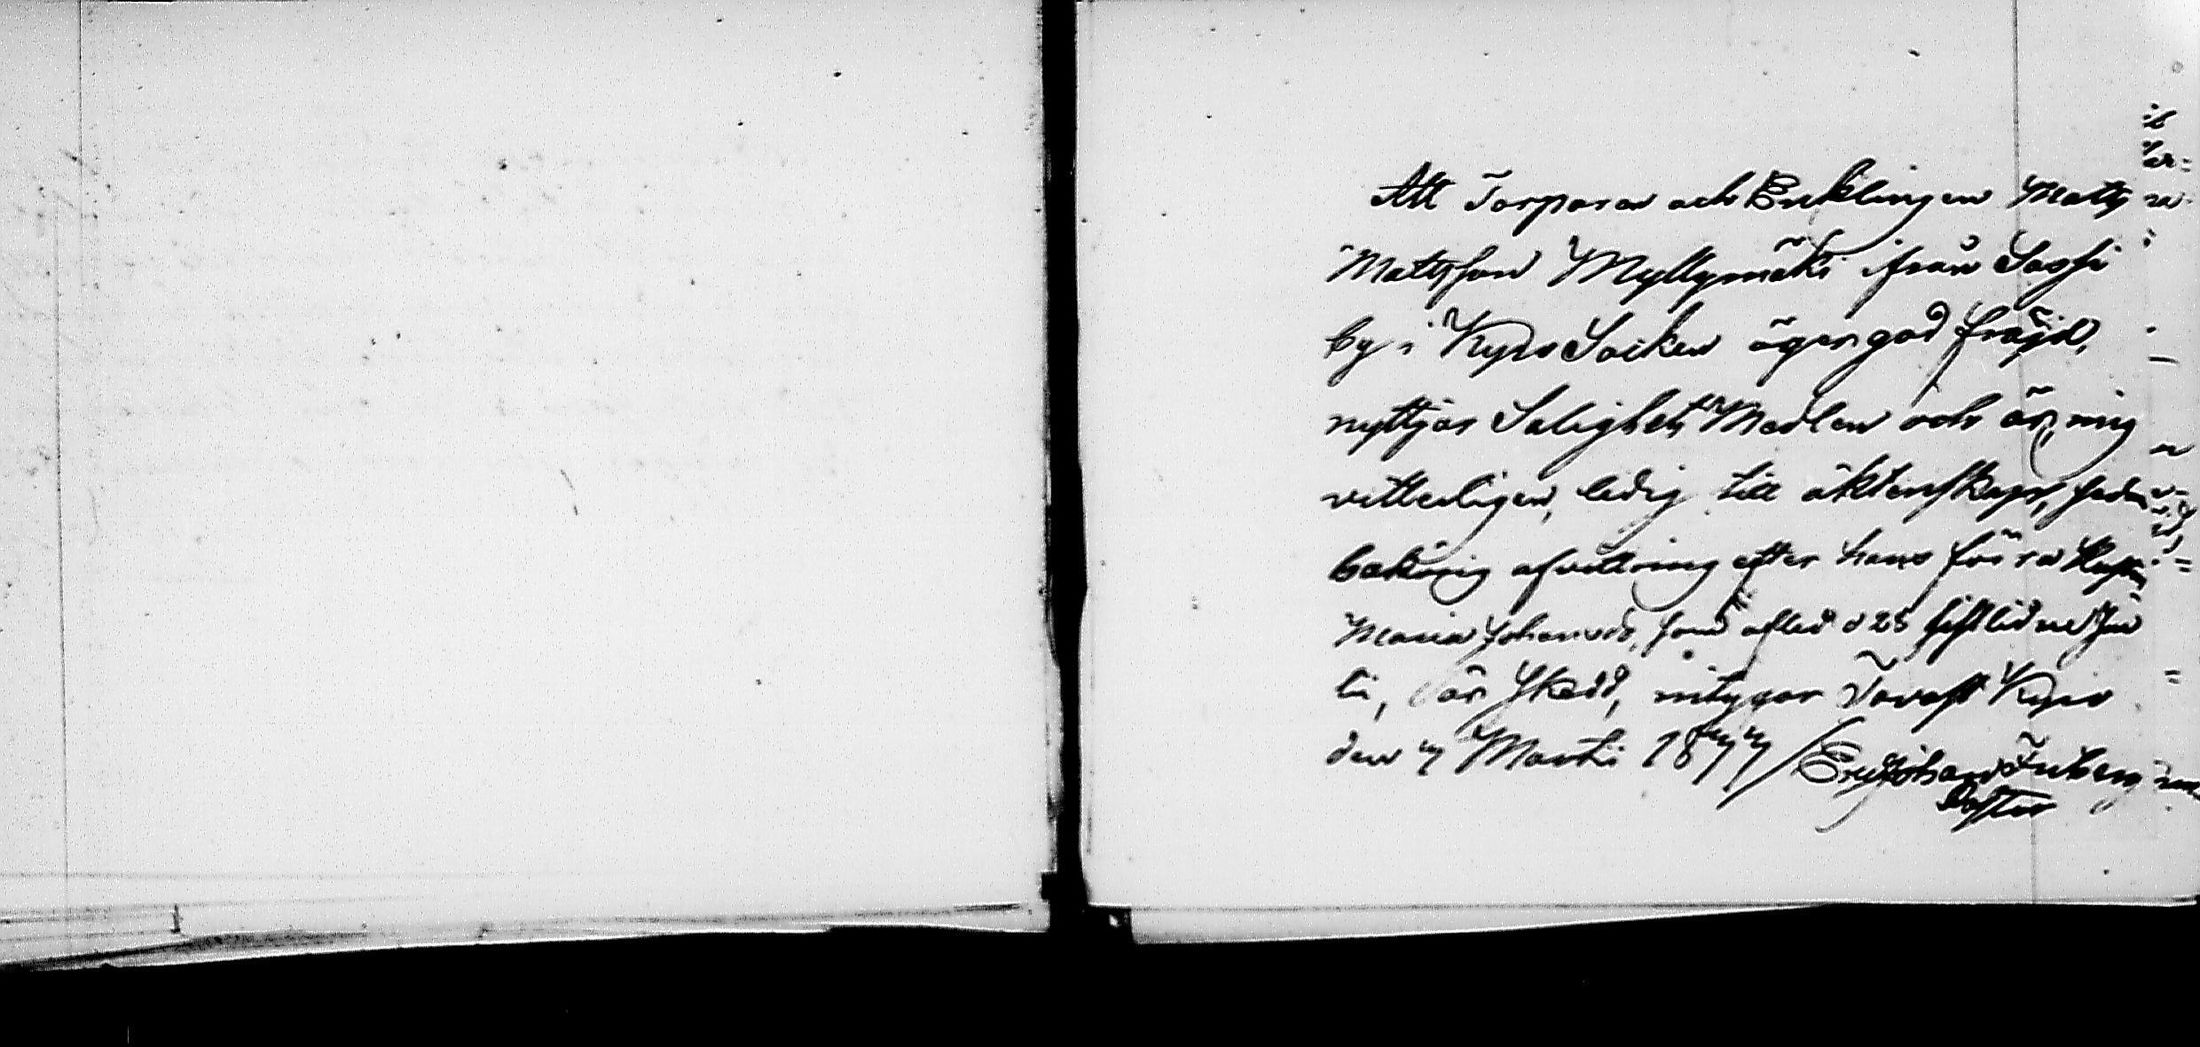 Att Torparen och Enklingen Matts
Mattsson Myllymäki ifrån Sassi
by i Kyro Socken äger god fräjd,
nyttjar Salighets Medlen och är, mig
vetterligen, ledig till äktenskap, sedan
behörig afvittring efter hans förra Hustru
Maria Johansdr, som afled d 28 sistlidne Ju
li, är skedd, intygar Tavast Kyro
den 7 Martii 1877 / Johan
Pastor